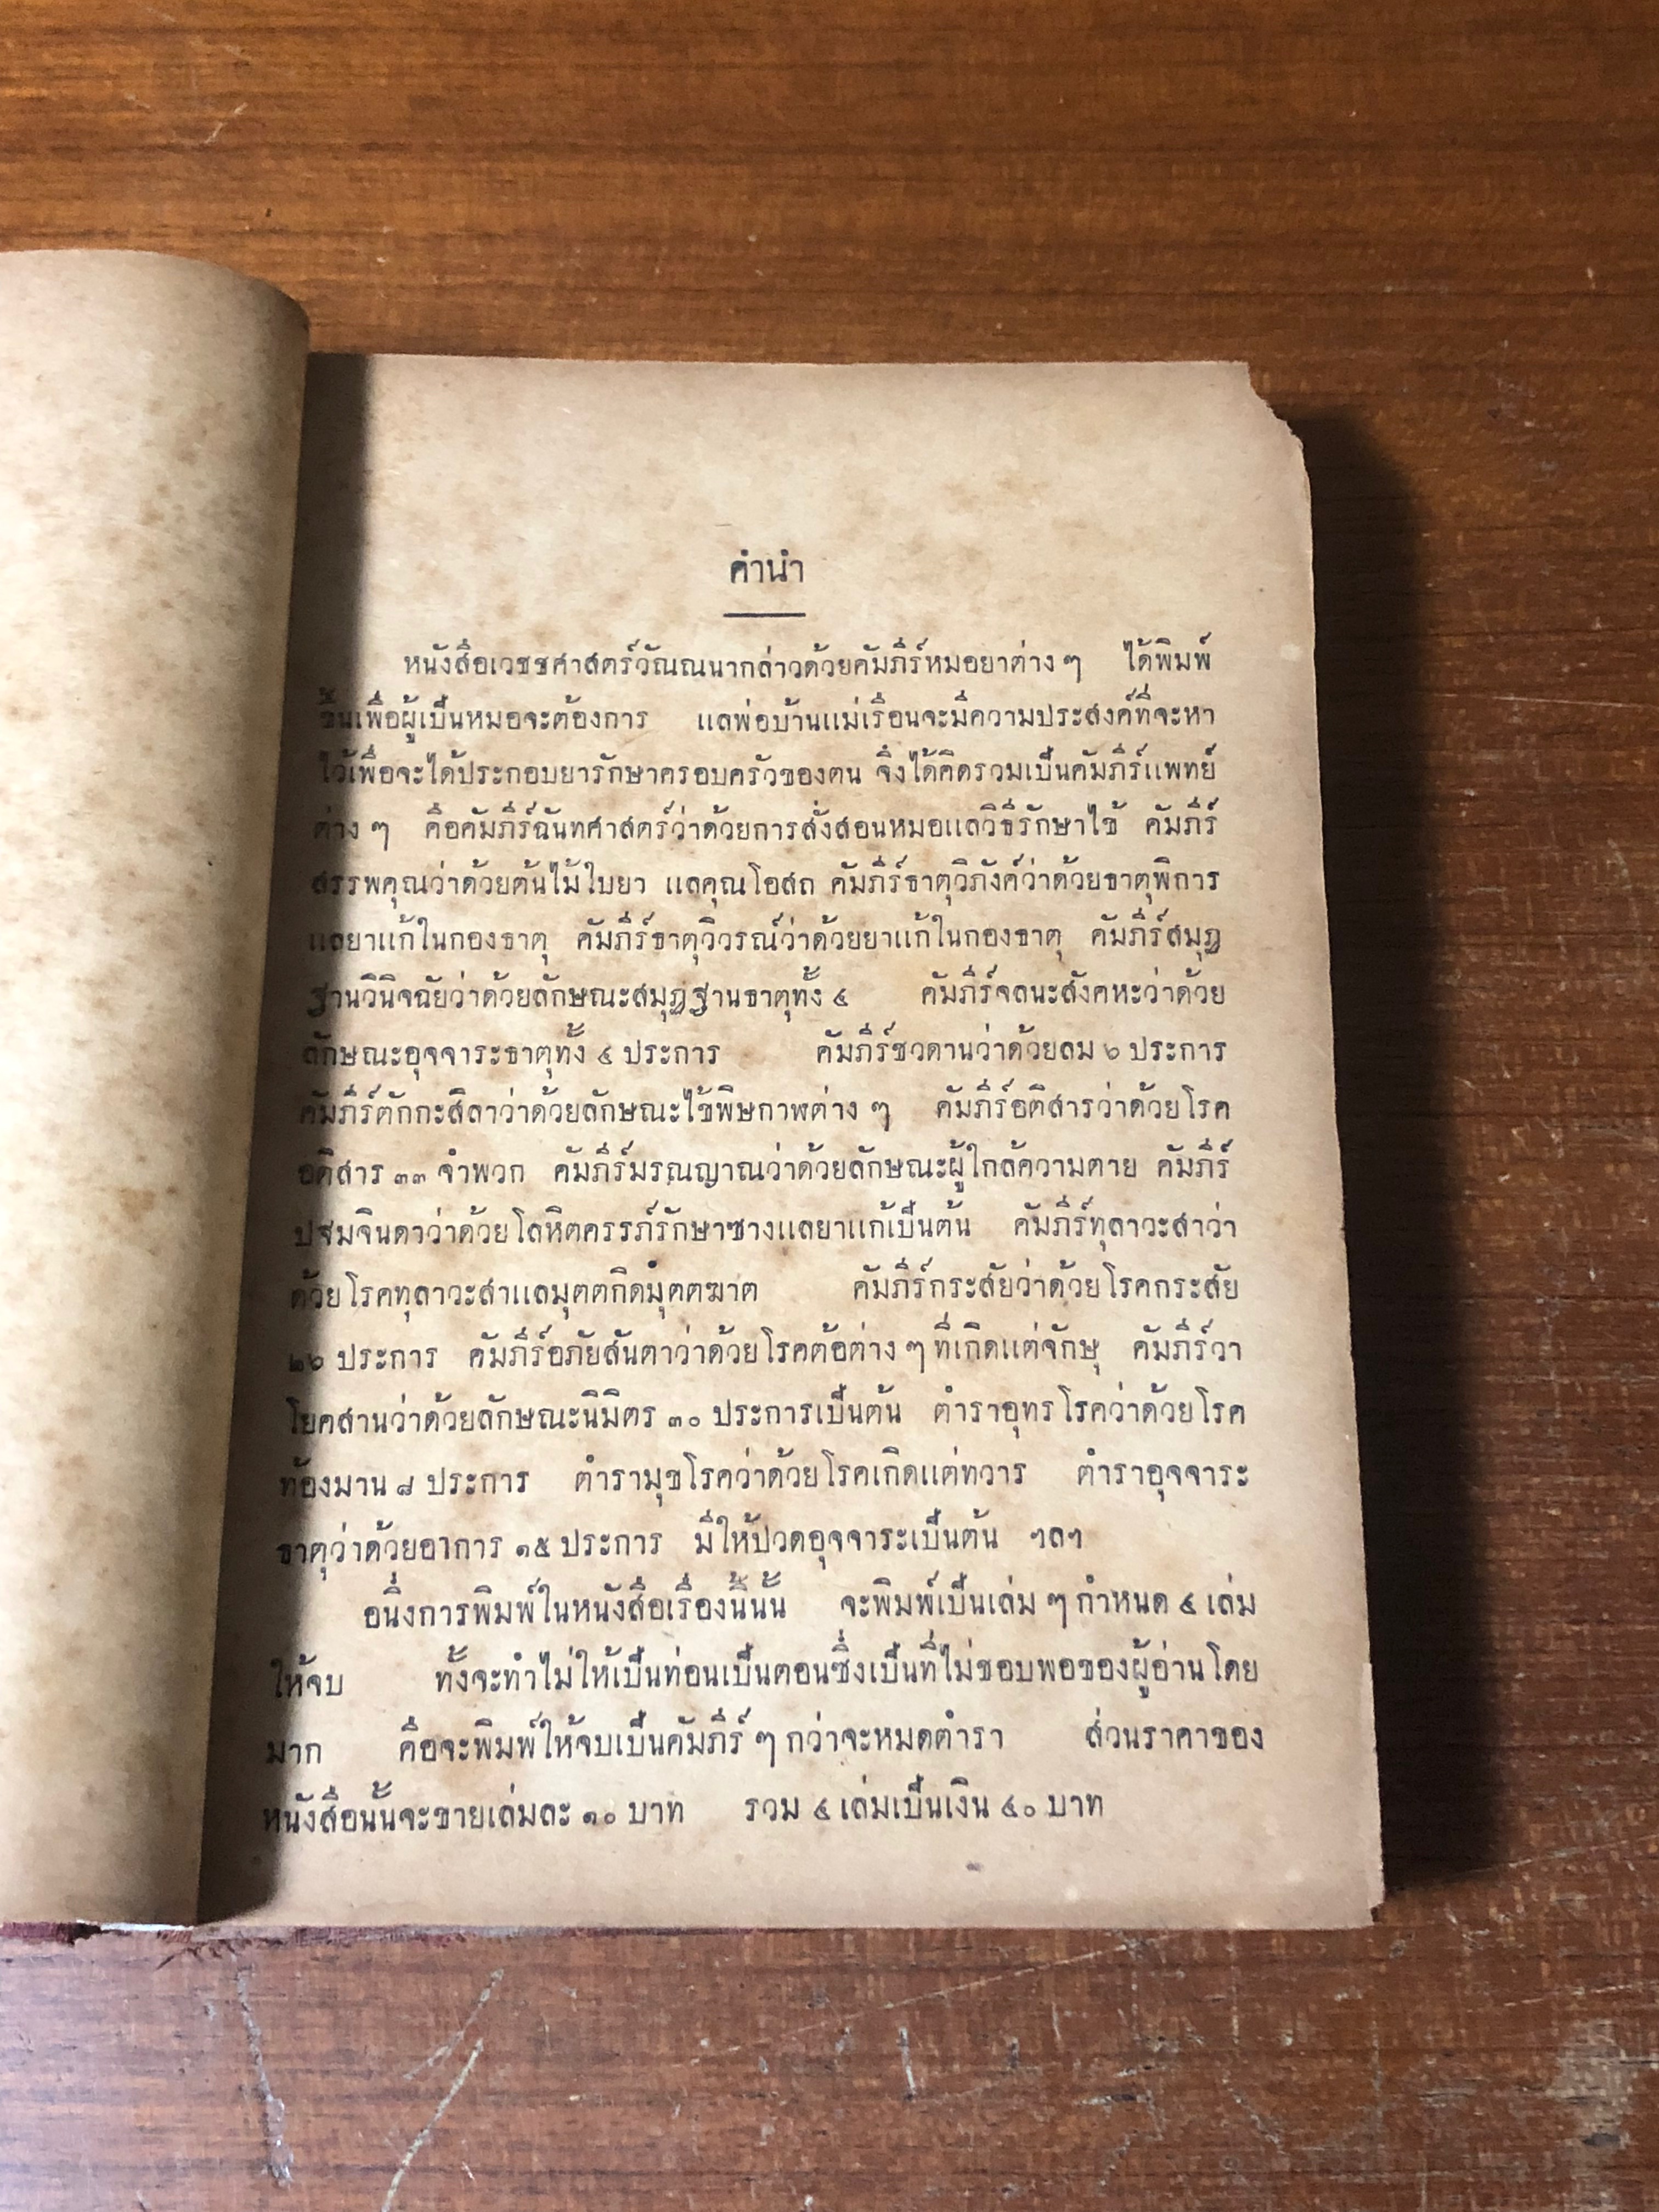 คำนำ
หนังสือเวชชศาสตร์วัณณนากล่าวด้วยคัมภีร์หมอยาต่าง ๆ ได้พิมพ์
ขึ้นเพื่อผู้เป็นหมอจะต้องการ แลพ่อบ้านแม่เรือนจะมีความประสงค์ที่จะหา
ไว้เพื่อจะได้ประกอบยารักษาครอบครัวของตน จึงได้คิดรวมเป็นคัมภีร์แพทย์
ต่าง ๆ คือคัมภีร์ฉันทศาสตร์ว่าด้วยการสั่งสอนหมอแลวิธีรักษาไข้ คัมภีร์
สรรพคุณว่าด้วยต้นไม้ใบยา แลคุณโอสถ คัมภีร์ธาตุวิภังค์ว่าด้วยธาตุพิการ
แลยาแก้ในกองธาตุ คัมภีร์ธาตุวิวรณ์ว่าด้วยยาแก้ในกองธาตุ คัมภีร์สมุฏ
ฐานวินิจฉัยว่าด้วยลักษณะสมุฏฐานธาตุทั้ง ๔ คัมภีร์จลนะสังคหะว่าด้วย
ลักษณะอุจจาระธาตุทั้ง ๔ ประการ คัมภีร์ชวดานว่าด้วยลม ๖ ประการ
คัมภีร์ตักกะสิลาว่าด้วยลักษณะไข้พิษกาฬต่าง ๆ คัมภีร์อติสารว่าด้วยโรค
อติสาร ๓๓ จำพวก คัมภีร์มรณญาณว่าด้วยลักษณะผู้ใกล้ความตาย คัมภีร์
ปฐมจินดาว่าด้วยโลหิตครรภ์รักษาซางแลยาแก้เป็นต้น คัมภีร์ทุลาวะสาว่า
ด้วยโรคทุลาวะสาแลมุตตกิดมุตตฆาต คัมภีร์กระสัยว่าด้วยโรคกระสัย
๒๖ ประการ คัมภีร์อภัยสันตาว่าด้วยโรคต้อต่าง ๆ ที่เกิดแต่จักษุ คัมภีร์วา
โยคสานว่าด้วยลักษณะนิมิตร ๓๐ ประการเป็นต้น ตำราอุทรโรคว่าด้วยโรค
ท้องมาน ๘ ประการ ตำรามุขโรคว่าด้วยโรคเกิดแต่ทวาร ตำราอุจจาระ
ธาตุว่าด้วยอาการ ๑๕ ประการ มีให้ปวดอุจจาระเป็นต้น ฯลฯ
อนึ่งการพิมพ์ในหนังสือเรื่องนี้นั้น จะพิมพ์เป็นเล่ม ๆ กำหนด ๔ เล่ม
ให้จบ ทั้งจะทำไม่ให้เป็นท่อนเป็นตอนซึ่งเป็นที่ไม่ชอบพอของผู้อ่านโดย
มาก คือจะพิมพ์ให้จบเป็นคัมภีร์ ๆ กว่าจะหมดตำรา ส่วนราคาของ
หนังสือนั้นจะขายเล่มละ ๑๐ บาท รวม ๔ เล่มเป็นเงิน ๔๐ บาท